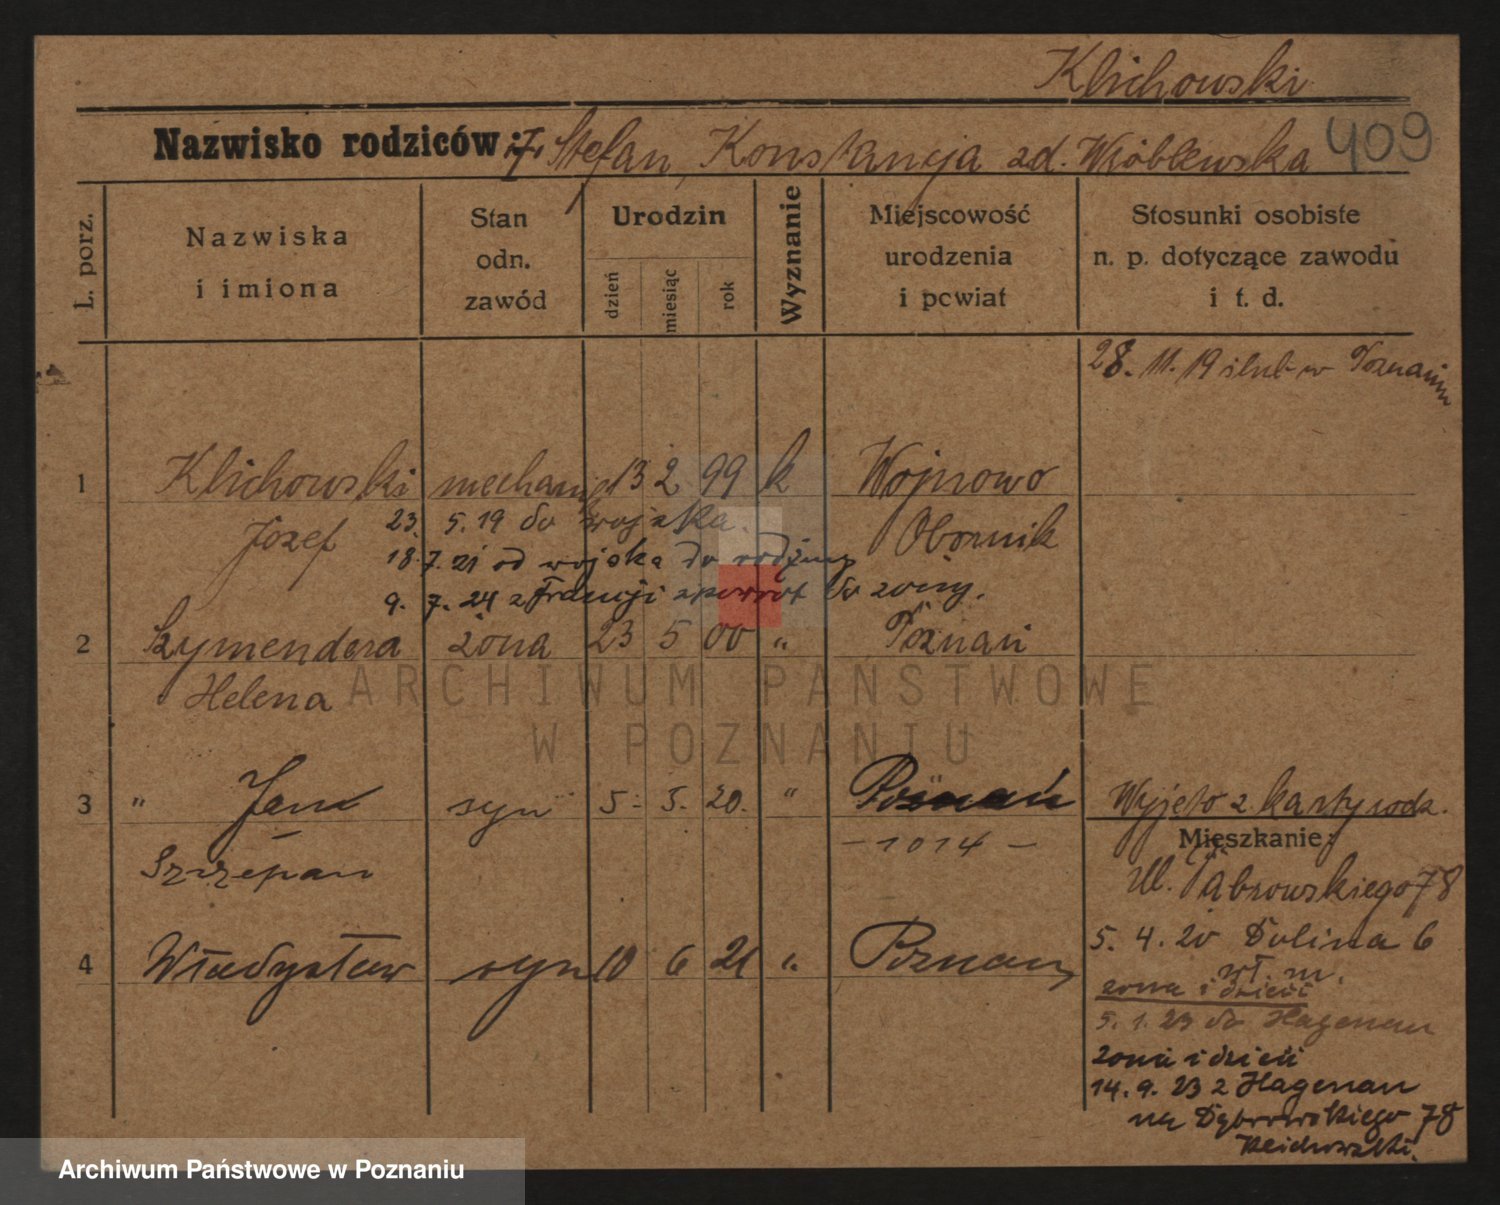 Klichowski
Nazwisko rodziców: Stefan, Konstancja zd. Wróblewska 409
L. porz.
Nazwiska i imiona
Stan odn. zawód
Urodzin
dzień
miesiąc
rok
Wyznanie
Miejscowość urodzenia i powiat
Stosunki osobiste n. p. dotyczące zawodu i t. d.
28. 11. 19 ślub w Poznaniu
1 Klichowski mechanik 13 2 99 k Wojnowo
Józef 23. 5. 19 do wojska. Obornik
18. 7. 21 od wojska do rodziny
9. 7. 24 z Francji zpowrot do żony.
2 Szymendera żona 23 5 00 " Poznań
Helena
ARCHIWUM PAŃSTWOWE
W POZNANIU
3 " Jan syn 5. 5. 20. " Poznań Wyjęto z karty rodz.
– 1014 – Mieszkanie:
Szczepan Ul. Dąbrowskiego 78
5. 4. 20 Dolina 6
4 Władysław syn 10 6 21 " Poznań wł. m.
żona i dzieci
5. 1. 23 do Hagenau
żona i dzieci
14. 9. 23 z Hagenau
na Dąbrowskiego 78
Klichowski.
Archiwum Państwowe w Poznaniu